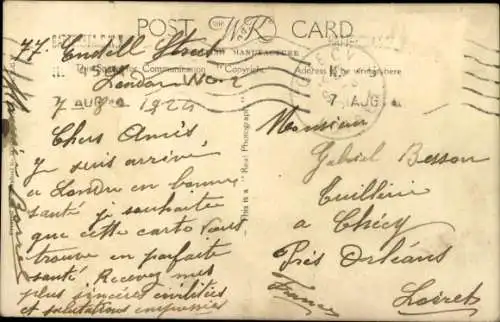 POST CARD
MANUFACTURE
This Space for Communication Copyright. Address to be written here
77 Endell Street
London W.C.2
7 AUG
7 AUG
7 8 1922
Chers Amis
Je suis arrivé
a Londre en bonne
santé je souhaite
que cette carte Vous
trouve en parfaite
santé Recevez mes
plus sincères civilités
et salutations empressées
This is a "Real Photograph"
Monsieur
Gabriel Besson
Tuillerie
a Chécy
Près Orléans
Loiret
France